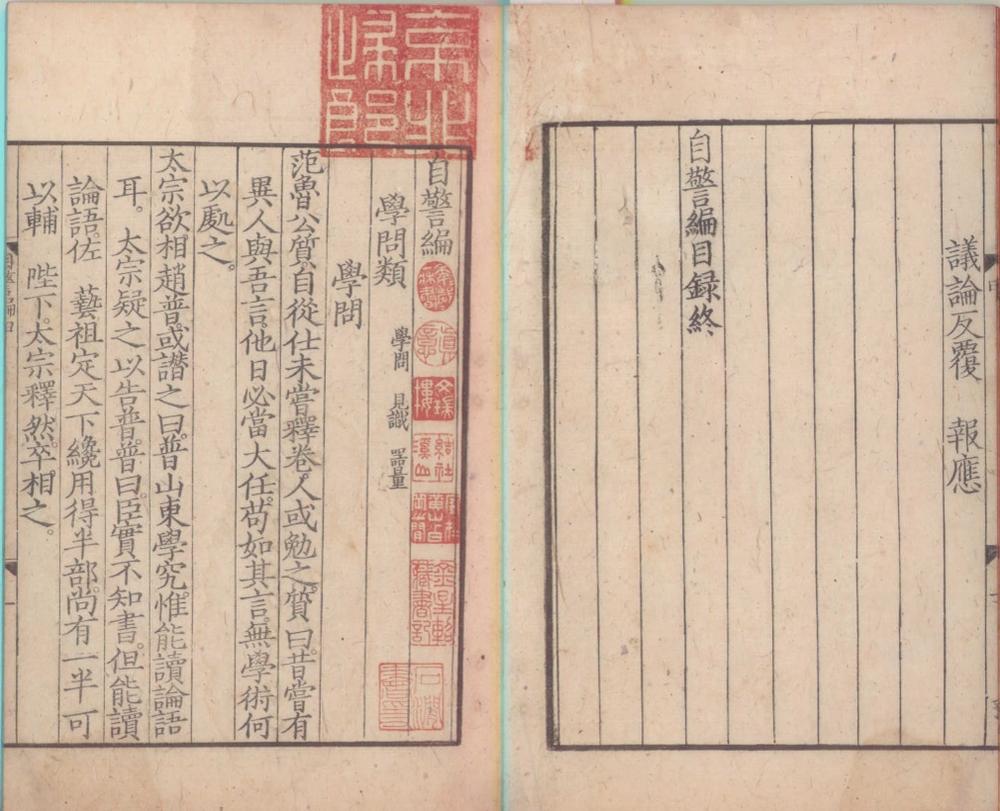 議論反覆　報應
自警編目録終
自警編
學問類　學問　見識　器量
學問
范魯公質自從仕未嘗釋卷人或勉之質曰昔嘗有
異人與吾言他日必當大任苟如其言無學術何
以處之。
太宗欲相趙普或譖之曰普山東學究惟能讀論語
耳。太宗疑之以告普普曰臣實不知書。但能讀
論語佐　藝祖定天下纔用得半部尚有一半可
以輔　陛下太宗釋然卒相之。